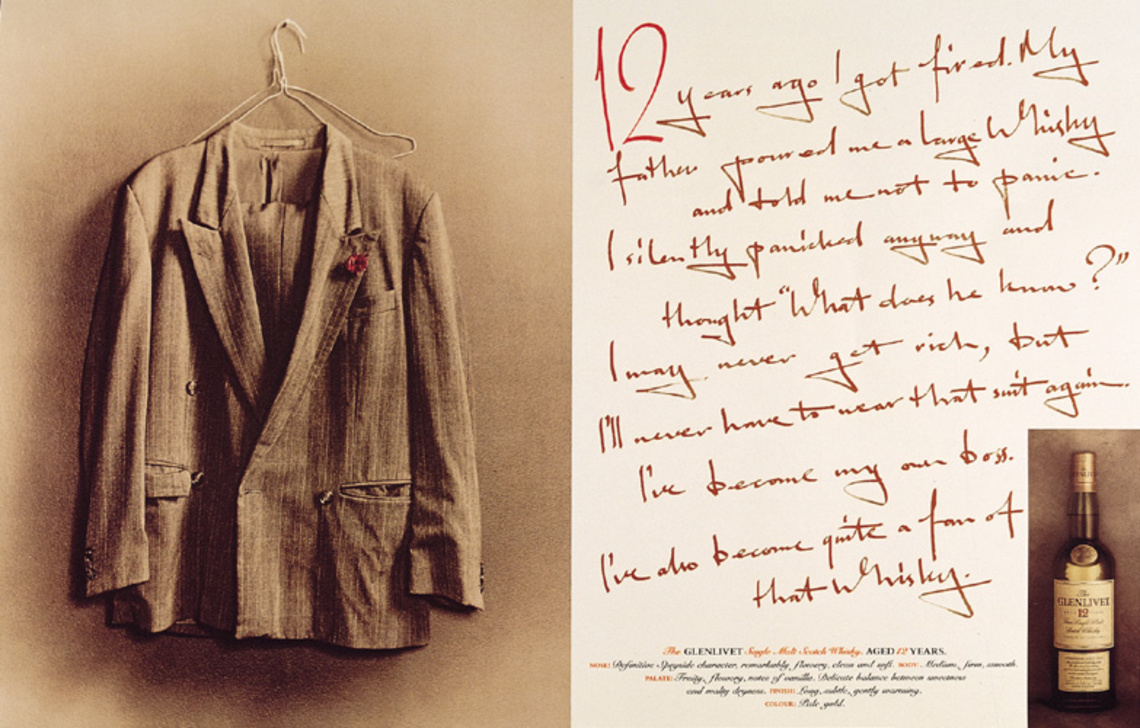 12 years ago I got fired. My
father poured me a large Whisky
and told me not to panic.
I silently panicked anyway and
thought "What does he know?"
I may never get rich, but
I'll never have to wear that suit again.
I've become my own boss.
I've also become quite a fan of
that Whisky.
The GLENLIVET Single Malt Scotch Whisky. AGED 12 YEARS.
NOSE: Definitive Speyside character, remarkably flowery, clean and soft. BODY: Medium, firm, smooth.
PALATE: Fruity, flowery, notes of vanilla. Delicate balance between sweetness
and malty dryness. FINISH: Long, subtle, gently warming.
COLOUR: Pale gold.
The
GLENLIVET
12